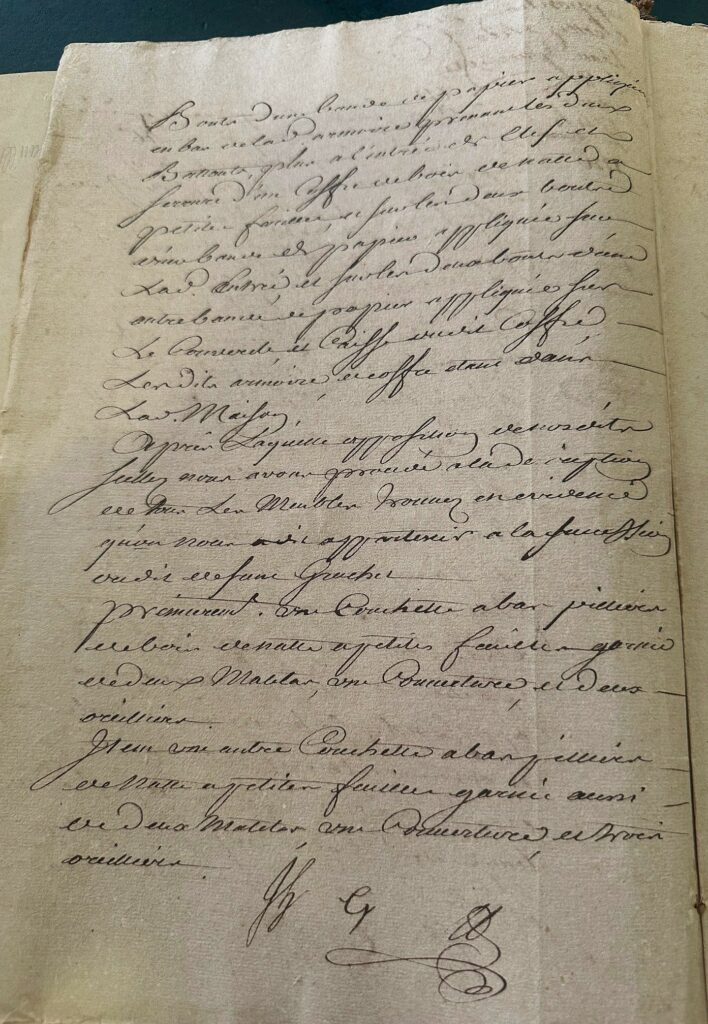 Bouts d'une bande de papier appliquée
en bas de lad. armoire prenant les deux
Battants, plus a l'entrée des Clef et
serrure d'un Coffre de bois de natte a
petites feuilles, et sur les deux bouts
d'une bande de papier, appliquée sur
Lad. Entrée et sur les deux bouts d'une
autre bande de papier appliquée sur
Le Couvercle et Caisse dudit Coffre
Lesdits armoire et coffre etant dans
Lad. Maison
Après Laquelle apposition de nosdits
scellez nous avons procédé a la description
de tous Les Meubles trouvez en evidence
qu'on nous a dit appartenir a la succession
dudit defunt Grochet
premierement. une Couchette a bas pilliers
de bois de natte a petites feuilles garnie
de deux Matelas, une Couverture et deux
oreilliers
Item une autre Couchette a bas pilliers
de natte a petites feuilles garnie aussi
de deux Matelas, une Couverture et trois
oreilliers